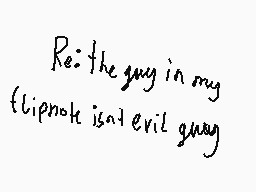 Re: the guy in my
flipnote isnt evil guag